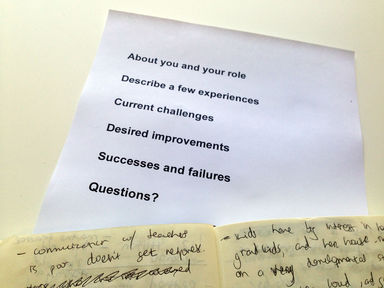 About you and your role
Describe a few experiences
Current challenges
Desired improvements
Successes and failures
Questions?
- communication w/ teacher
is poor. doesn't get
- kids have by interest in
grandkids, and her house
on a very developmental
loud